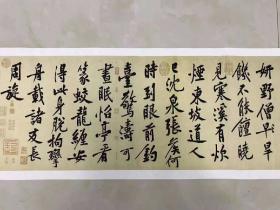 妍野僧早
飢不能饘曉
見寒溪有炊
煙東坡道人
已沈泉張侯何
時到眼前釣
臺驚濤可
晝眠怡亭看
篆蛟龍纏安
得此身脫拘攣
舟載諸友長
周旋